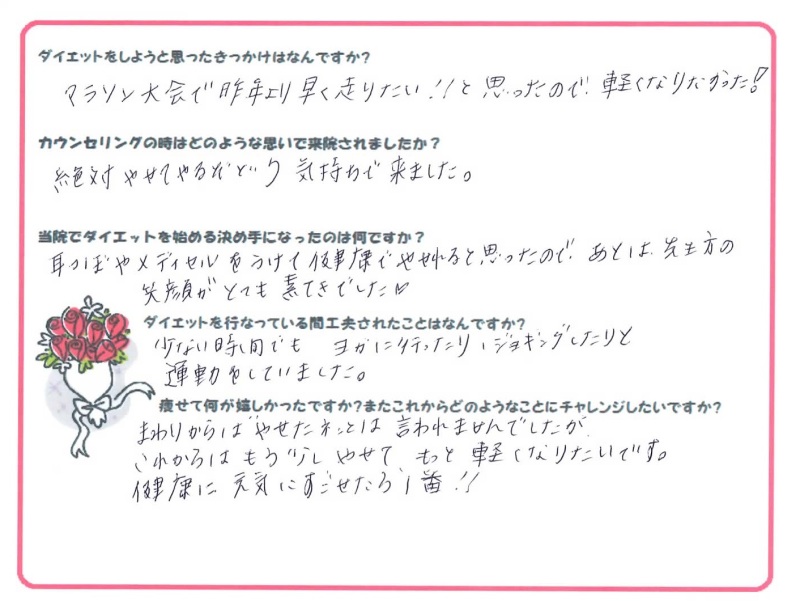 ダイエットをしようと思ったきっかけはなんですか?
マラソン大会で昨年より早く走りたい!!と思ったので、軽くなりたかった!
カウンセリングの時はどのような思いで来院されましたか?
絶対やせてやるぞという気持ちで来ました。
当院でダイエットを始める決め手になったのは何ですか?
耳つぼやメディセルをうけて健康でやせれると思ったので あとは、先生方の
笑顔がとても素てきでした♡
ダイエットを行なっている間工夫されたことはなんですか?
少ない時間でも ヨガに行ったり、ジョギングしたりと
運動をしていました。
痩せて何が嬉しかったですか?またこれからどのようなことにチャレンジしたいですか?
まわりからはやせたネッとは言われませんでしたが
これからはもう少しやせて もっと軽くなりたいです。
健康に元気にすごせたら1番!!